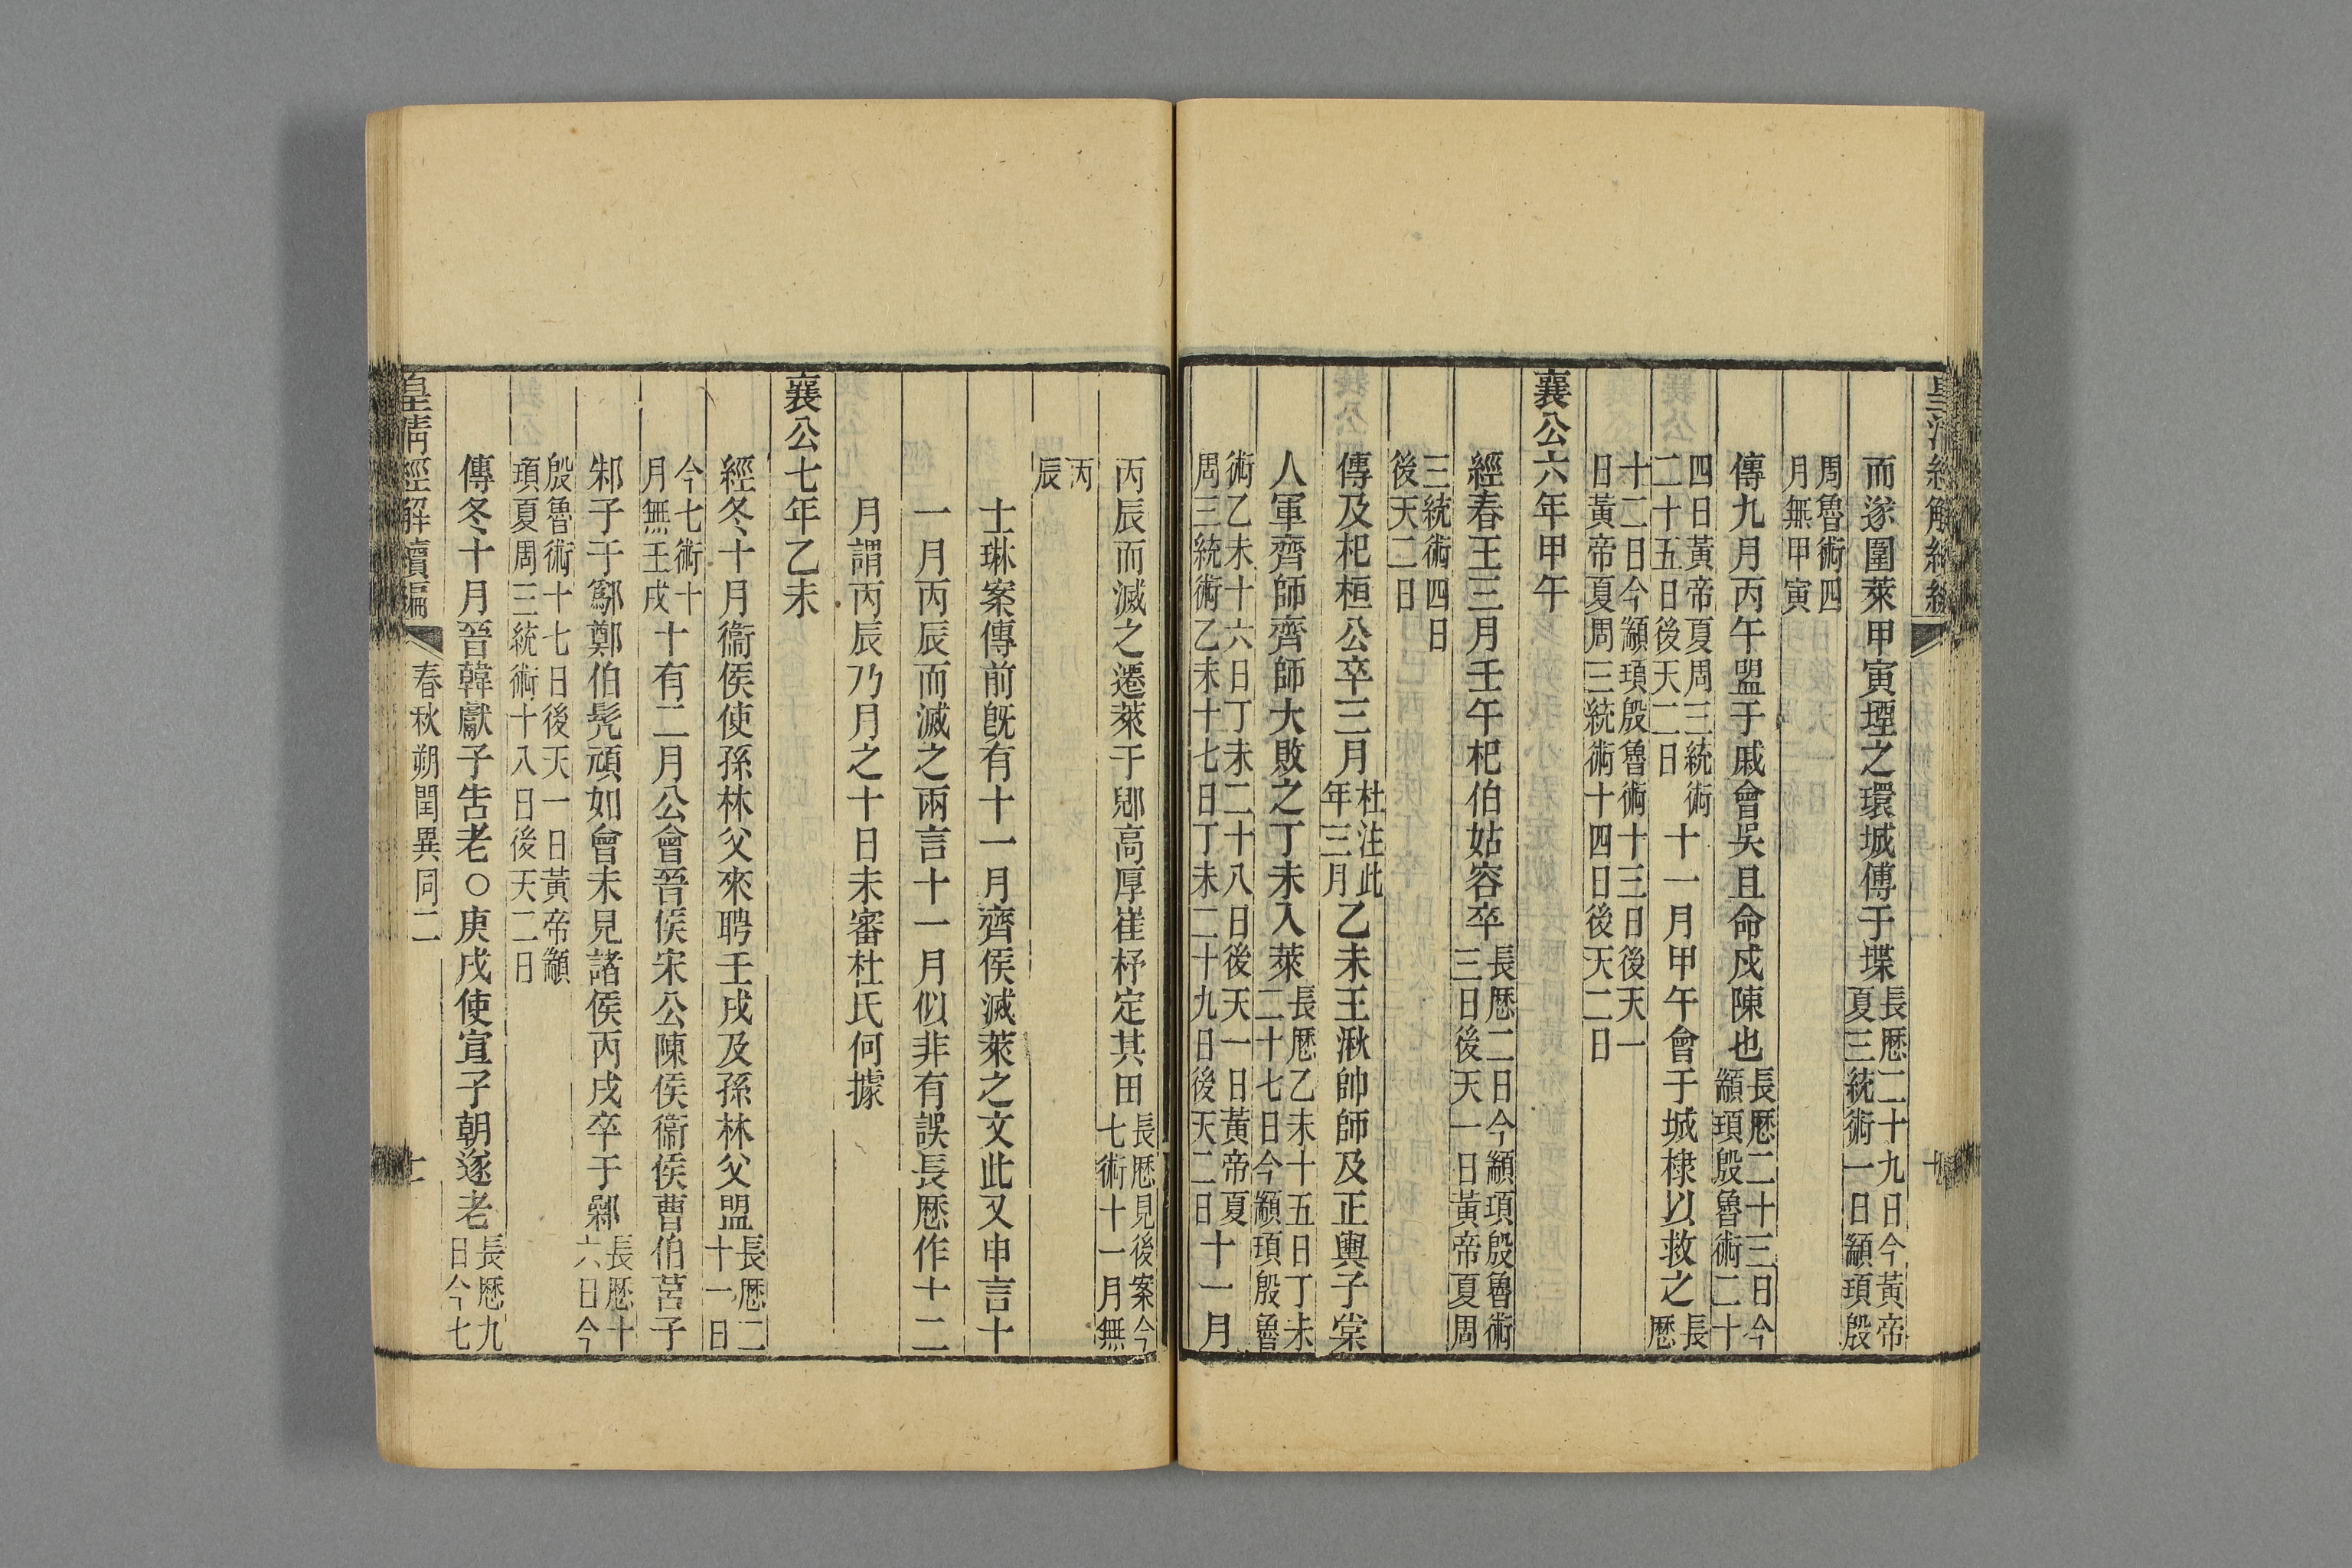 而遂圍萊甲寅堙之環城傅于堞長厯二十九日今黃帝夏三統術一日顓頊殷
周魯術四月無甲寅
傳九月丙午盟于戚會吳且命戍陳也長厯二十三日今顓頊殷魯術二十
四日黃帝夏周三統術二十五日後天二日十一月甲午會于城棣以救之長厯
十二日今顓頊殷魯術十三日後天一日黃帝夏周三統術十四日後天二日
襄公六年甲午
經春王三月壬午杞伯姑容卒長厯二日今顓頊殷魯術三日後天一日黃帝夏周
三統術四日後天二日
傳及杞桓公卒三月杜注此年三月乙未王湫帥師及正輿子棠
人軍齊師齊師大敗之丁未入萊長厯乙未十五日丁未二十七日今顓頊殷魯
術乙未十六日丁未二十八日後天一日黃帝夏周三統術乙未十七日丁未二十九日後天二日十一月
丙辰而滅之遷萊于郳高厚崔杼定其田長厯見後案今七術十一月無
丙辰
士琳案傳前旣有十一月齊侯滅萊之文此又申言十
一月丙辰而滅之兩言十一月似非有誤長厯作十二
月謂丙辰乃月之十日未審杜氏何據
襄公七年乙未
經冬十月衞侯使孫林父來聘壬戌及孫林父盟長厯二十一日
今七術十月無壬戌十有二月公會晉侯宋公陳侯衞侯曹伯莒子
邾子于鄬鄭伯髡頑如會未見諸侯丙戌卒于鄵長厯十六日今
殷魯術十七日後天一日黃帝顓頊夏周三統術十八日後天二日
傳冬十月晉韓獻子告老○庚戌使宣子朝遂老長厯九日今七
皇清經解續編 春秋朔閏異同二